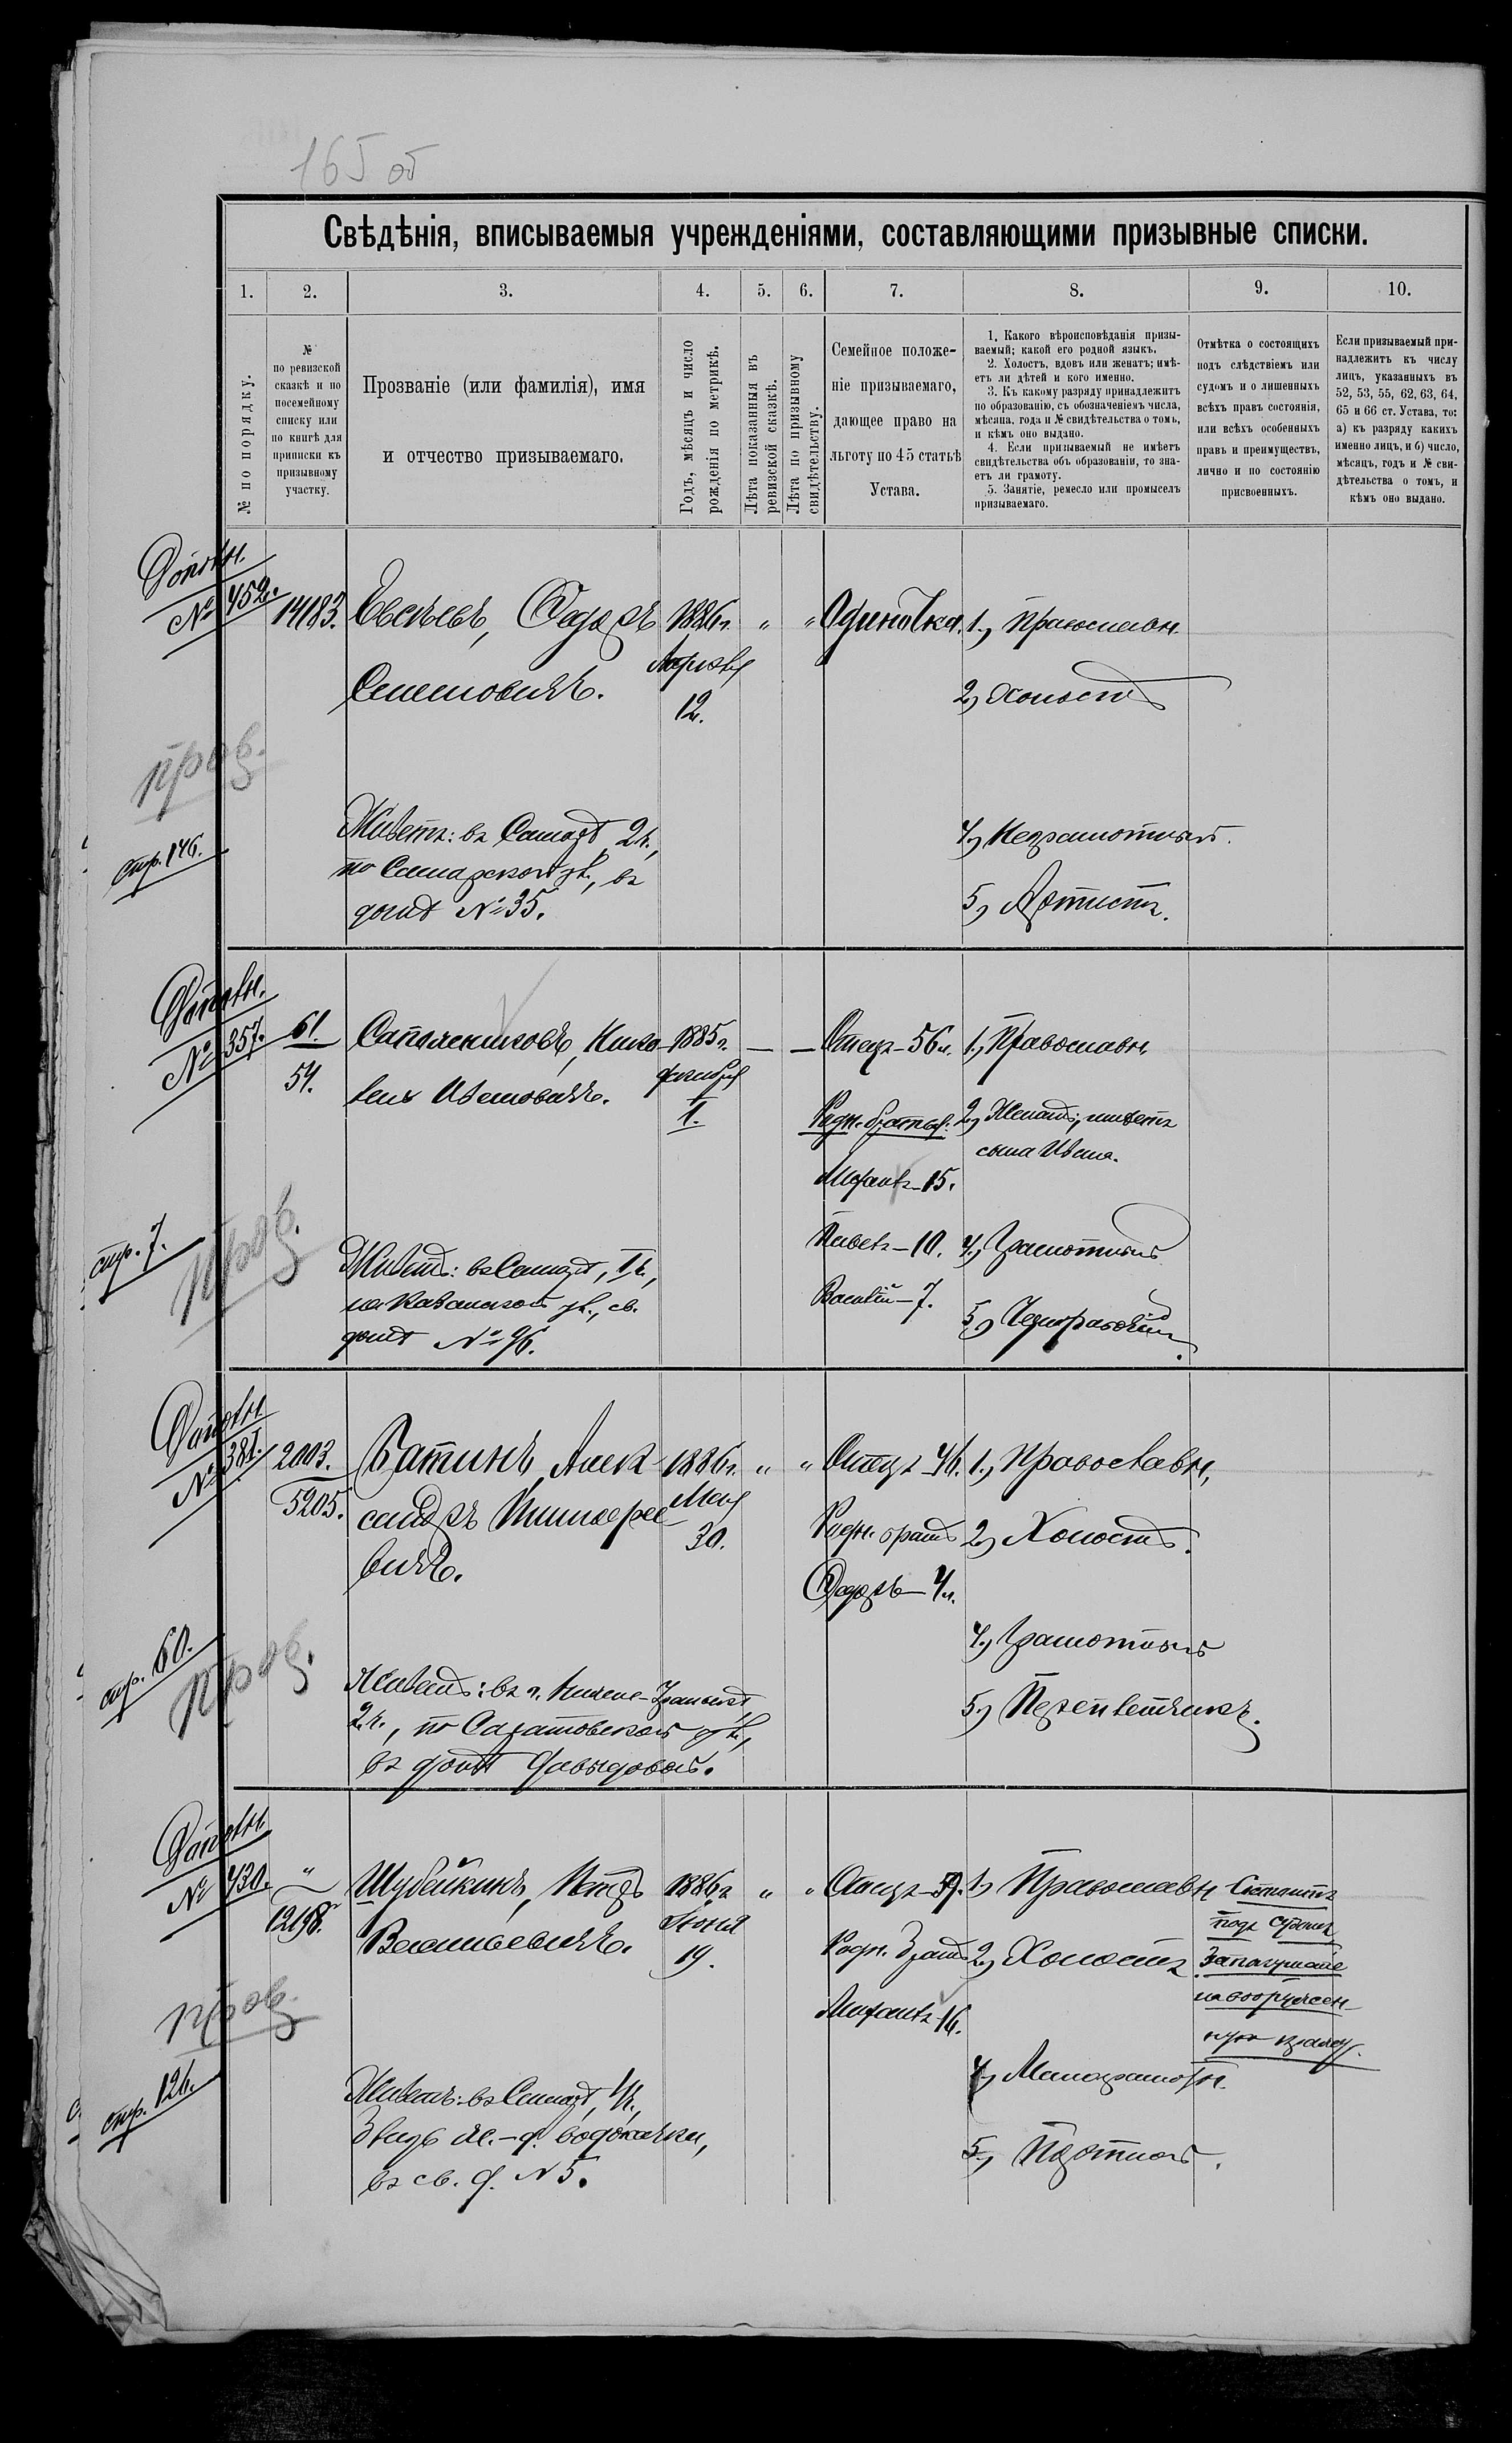 165 об
Свѣдѣнія, вписываемыя учрежденіями, составляющими призывные списки.
1. 2. 3. 4. 5. 6. 7. 8. 9. 10.
№ по порядку.
№
по ревизской
сказкѣ и по
посемейному
списку или
по книгѣ для
приписки къ
призывному
участку.
Прозваніе (или фамилія), имя
и отчество призываемаго.
Годъ, мѣсяцъ и число
рожденія по метрикѣ.
Лѣта показанныя въ
ревизской сказкѣ.
Лѣта по призывному
свидѣтельству.
Семейное положе-
ніе призываемаго,
дающее право на
льготу по 45 статьѣ
Устава.
1. Какого вѣроисповѣданія призы-
ваемый; какой его родной языкъ.
2. Холостъ, вдовъ или женатъ; имѣ-
етъ ли дѣтей и кого именно.
3. Къ какому разряду принадлежитъ
по образованію, съ обозначеніемъ числа,
мѣсяца, года и № свидѣтельства о томъ,
и кѣмъ оно выдано.
4. Если призываемый не имѣетъ
свидѣтельства объ образованіи, то зна-
етъ ли грамоту.
5. Занятіе, ремесло или промыселъ
призываемаго.
Отмѣтка о состоящихъ
подъ слѣдствіемъ или
судомъ и о лишенныхъ
всѣхъ правъ состоянія,
или всѣхъ особенныхъ
правъ и преимуществъ,
лично и по состоянію
присвоенныхъ.
Если призываемый при-
надлежитъ къ числу
лицъ, указанныхъ въ
52, 53, 55, 62, 63, 64,
65 и 66 ст. Устава, то:
а) къ разряду какихъ
именно лицъ, и б) число,
мѣсяцъ, годъ и № сви-
дѣтельства о томъ, и
кѣмъ оно выдано.
Дополн.
№ 452.
14183.
Евсѣевъ, Ѳедоръ
Семеновичъ.
1886 г.
Апрѣля
12.
" "
Одиночка.
1, Православн.
2, Холостъ
4, Неграмотный.
5, Артистъ.
пров.
стр. 146.
Живетъ: въ Самарѣ, 2 ч.,
по Самарской ул., въ
домѣ № 35.
Дополн.
№ 357.
61.
54.
Сапожниковъ, Нико-
лай Ивановичъ.
1885 г.
Декабря
1.
— —
Отецъ – 56 л.
Родн. братья:
Михаилъ – 15.
Павелъ – 10.
Василій – 7.
1, Православн.
2, Женатъ, имѣетъ
сына Ивана.
4, Грамотный
5, Чернорабочій.
стр. 7.
пров.
Живетъ: въ Самарѣ, 1 ч.,
на Казанской ул., св.
домѣ № 96.
Дополн.
№ 381.
2003.
5205.
Батинъ, Алек-
сандръ Тимофее-
вичъ.
1886 г.
Мая
30.
" "
Отецъ – 46.
Родн. братъ
Ѳедоръ – 4 л.
1, Православн,
2, Холостъ.
4, Грамотный
5, Переплетчикъ.
стр. 60.
пров.
Живетъ: въ г. Ново-Узенскѣ,
2 ч., по Саратовской ул.,
въ домѣ Давыдовой.
Дополн.
№ 430.
"
12198.
Шубейкинъ, Петръ
Васильевичъ.
1886 г
Іюня
19.
" "
Отецъ – 39.
Родн. братъ
Михаилъ 16.
1, Православн
2, Холостъ
4, Малограмотн.
5, Портной.
Состоитъ
подъ судомъ
За покушеніе
на вооружен-
ную кражу.
пров.
стр. 124.
Живетъ: въ Самарѣ, 4 ч.,
близь ж.-д. водокачки,
въ св. д. № 5.